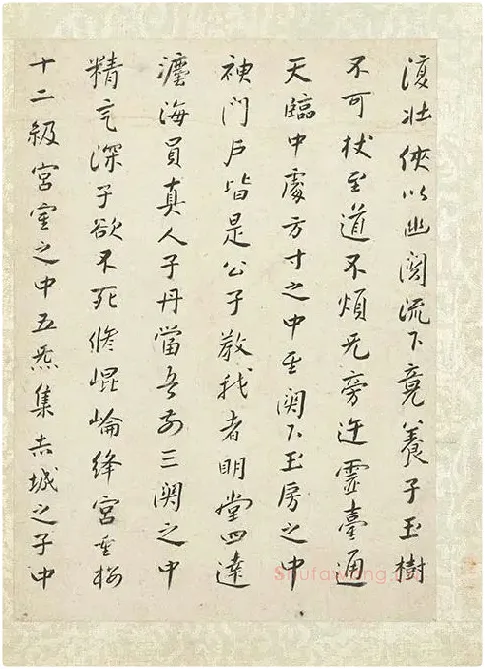 復壯俠以幽闕流下竟養子玉樹
不可杖至道不煩无旁迕靈臺通
天臨中處方寸之中至関下玉房之中
神門戶皆是公子教我者明堂四達
灋海員真人子丹當吾前三関之中
精氣深子欲不死脩崐崘絳宮重樓
十二級宮室之中五炁集赤城之子中